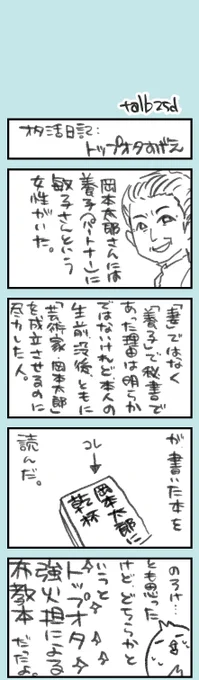 talb2sd
オタ活日記:
トップオタすげえ
岡本太郎さんには
養子(パートナー)に
敏子さんという
女性がいた。
「妻」ではなく
「養子」で秘書で
あった理由は明らか
ではないけれど本人の
生前、没後、ともに
「芸術家・岡本太郎」
を成立させるのに
尽力した人。
が書いた本を
読んだ。
コレ
岡本太郎に
乾杯
のろけ…
とも思った
けど、どちらかと
いうと
トップオタ
強火担による
布教本だたよ。